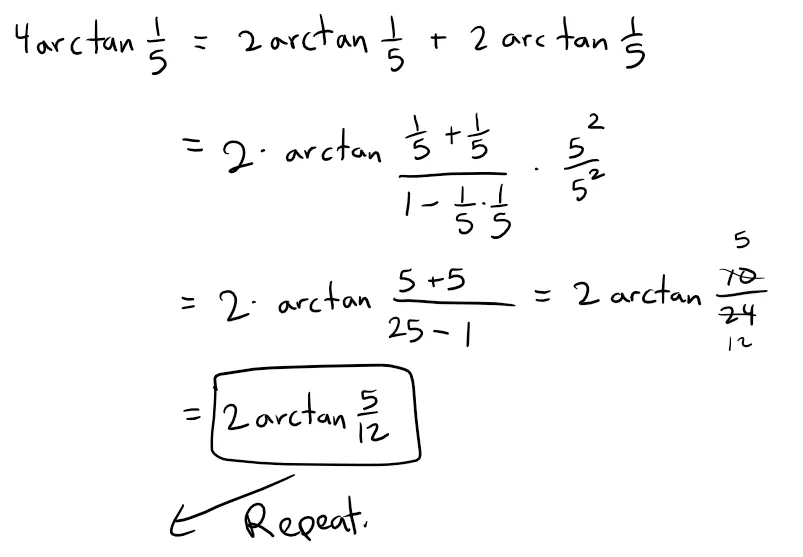 4 arctan 1/5 = 2 arctan 1/5 + 2 arctan 1/5
= 2 · arctan (1/5 + 1/5)/(1 - 1/5 · 1/5) · 5²/5²
= 2 · arctan (5 + 5)/(25 - 1) = 2 arctan 10/24 5 12
= 2 arctan 5/12
Repeat.